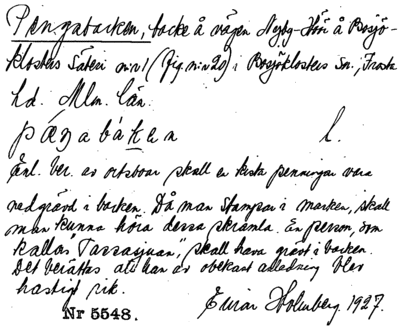 Pengabacken, backe å vägen Nyby-Höör å Bosjö-
klosters Säteri n:r 1 (fig. n:r 20) i Bosjöklosters Sn., Frosta
hd. Mlm. län.
pæŋabakən l.
Enl. ber. av ortsboar skall en kista penningar vara
nedgrävd i backen. Då man stampar i marken, skall
man kunna höra dessa skramla. En person, som
kallas "Tassasjuan", skall hava grävt i backen.
Det berättas att han av obekant anledning blev
hastigt rik.
Einar Holmberg. 1927.
Nr 5548.